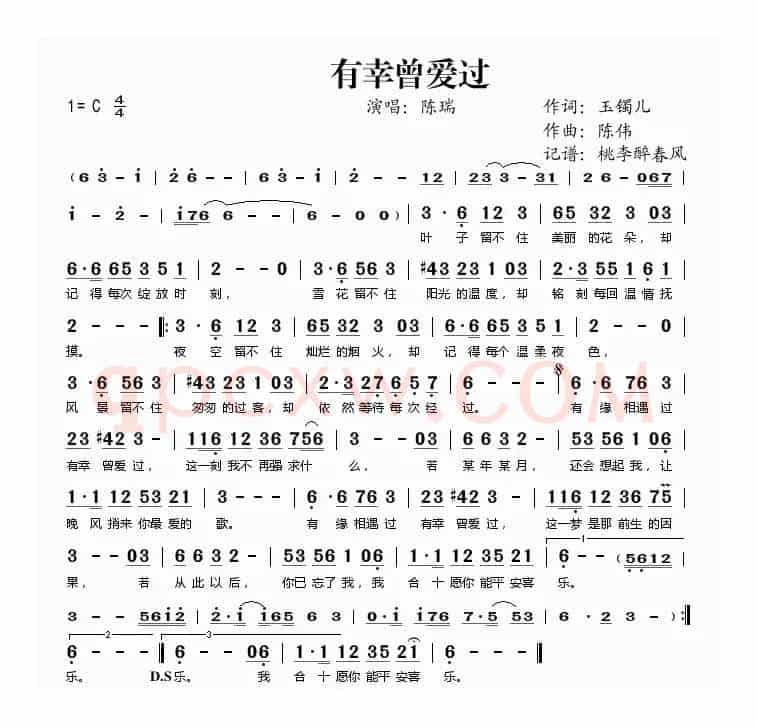 有幸曾爱过
1= C 4/4 演唱：陈瑞 作词：玉镯儿
作曲：陈伟
记谱：桃李醉春风
( 6 3 - i | 2 6 - - | 6 3 - i | 2 - - 12 | 23 3 - 31 | 2 6 - 067 |
i - 2 - | i76 6 - - | 6 - 0 0 ) | 3 · 6 12 3 | 65 32 3 03 |
叶 子 留不 住 美丽 的花 朵，却
6·6 65 3 5 1 | 2 - - 0 | 3·6 56 3 | #43 23 1 03 | 2·3 55 1 6 1 |
记 得每次 绽 放时 刻， 雪 花留不住 阳光的温度，却 铭 刻每回温情抚
2 - - ‖: 3 · 6 12 3 | 65 32 3 03 | 6·6 65 3 5 1 | 2 - - 0 |
摸。 夜 空 留不 住 灿烂的烟 火，却 记 得每个 温柔夜 色，
3 ·6 56 3 | #43 23 1 03 | 2·3 2 7 6 5 7 | 6 - - - | 6 ·6 76 3 |
风 景 留不住 匆匆的过 客，却 依 然等待每次经 过。 有 缘 相遇过
23 #42 3 - | 116 12 36 756 | 3 - - 03 | 6 6 3 2 - | 53 56 1 06 |
有幸 曾爱 过， 这一刻 我不 再强 求什 么， 若 某 年 某 月， 还会 想起 我，让
1·1 12 53 21 | 3 - - - | 6 ·6 76 3 | 23 #42 3 - | 116 12 36 75 |
晚 风 捎来 你最 爱的 歌。 有 缘 相遇过 有幸 曾爱过， 这一梦 是那 前生 的因
3 - - 03 | 6 6 3 2 - - | 53 56 1 06 | 1·1 12 35 21 | 1 6 - - (5612
果， 若 从 此 以 后， 你已 忘了 我，我 合 十 愿你 能平 安喜 乐。
3 - - 5612 | 2·1 165 6 3 | 0 1 · 1 176 7·5 53 | 6 · 2 3 - ) :‖
2 3
6 - - - ‖ 6 - - 06 | 1·1 12 35 21 | 6 - - - ‖
乐。 D.S乐。 我 合 十 愿你 能平 安喜 乐。
qpcxw.COM